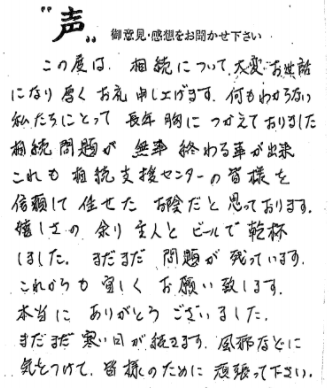 "声" 御意見・感想をお聞かせ下さい
この度は、相続について大変お世話
になり厚くお礼申し上げます。何もわからない
私たちにとって長年胸につかえておりました
相続問題が無事終わる事が出来
これも相続支援センターの皆様を
信頼して任せたお陰だと思っております。
嬉しさの余り主人とビールで乾杯
しました。まだまだ問題が残っています。
これからも宜しくお願い致します。
本当にありがとうございました。
まだまだ寒い日が続きます。風邪などに
気をつけて、皆様のために頑張って下さい。